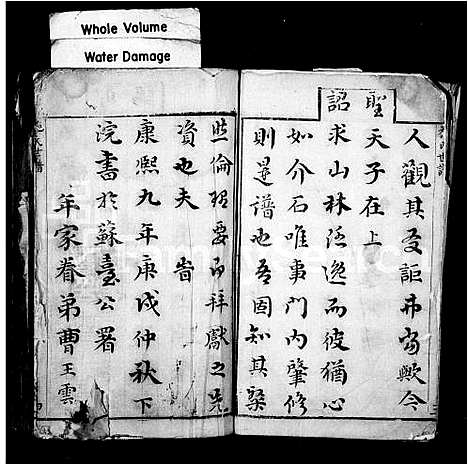 Whole Volume
Water Damage
人觀其爻詎弗當歟今
聖
天子在上
詔
求山林隱逸而彼猶心
如介石唯事門內肇修
則是譜也吾固知其槩
熙倫理要而拜獻之先
資也夫 旹
康熙九年庚戌仲秋下
浣書於蘇臺公署
年家眷弟曹王雲